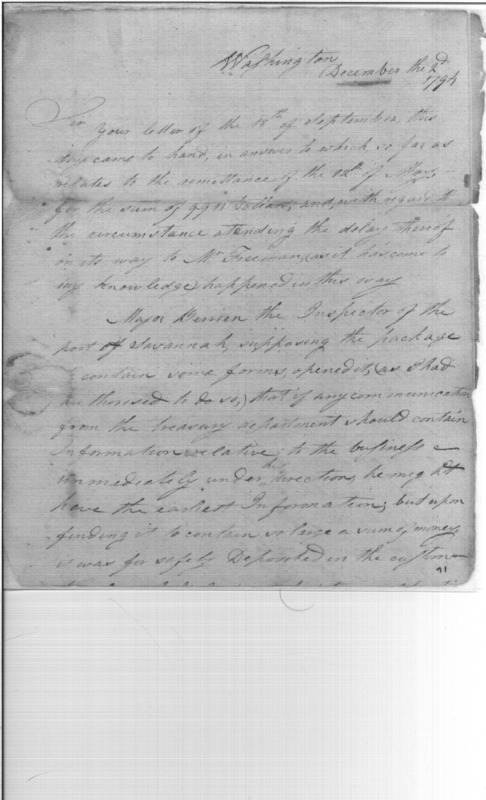 Washington
December the 2d
1794
Sir your letter of the 18th of September, this
day came to hand, in answer to which, so far as
relates to the remittance of the 12th of May,
for the sum of 9911 Dollars, and with regard to
the circumstance atending the delay thereof
on its way to Mr Freeman, (as it has come to
my knowledge) happened in this way
Major Berrien the Inspector of the
port of Savannah, supposing the package
to contain some forms, opened it, (as I had
authorised to do so,) that if any communication
from the treasury department should contain
Information relative, to the business
immediately under his direction, he might
have the earliest Information; but upon
finding it to contain so large a sum of money,
it was for safety Deposited in the custom
91